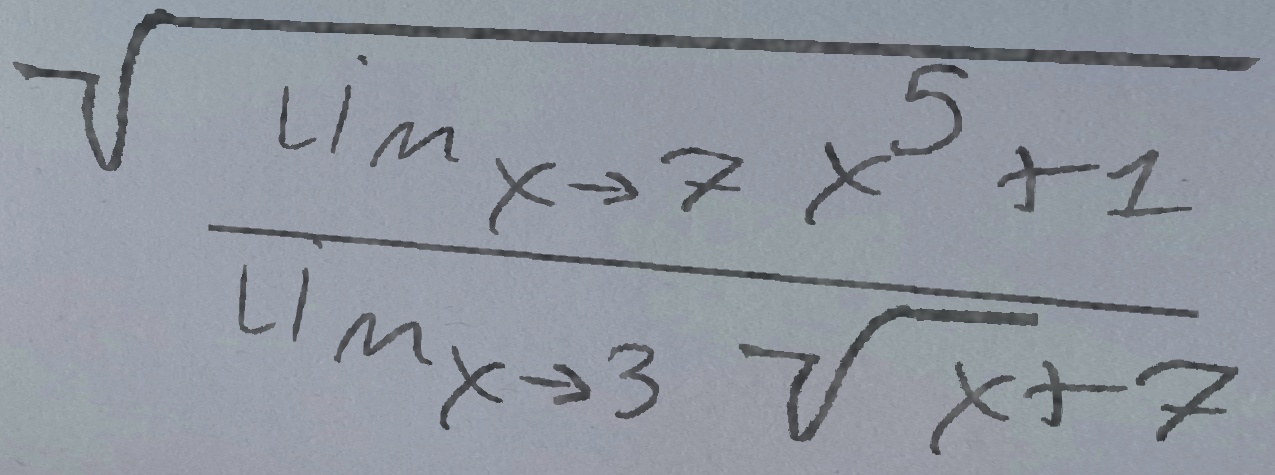 √ lim x→7 x^5 +1
lim x→3 √ x+7